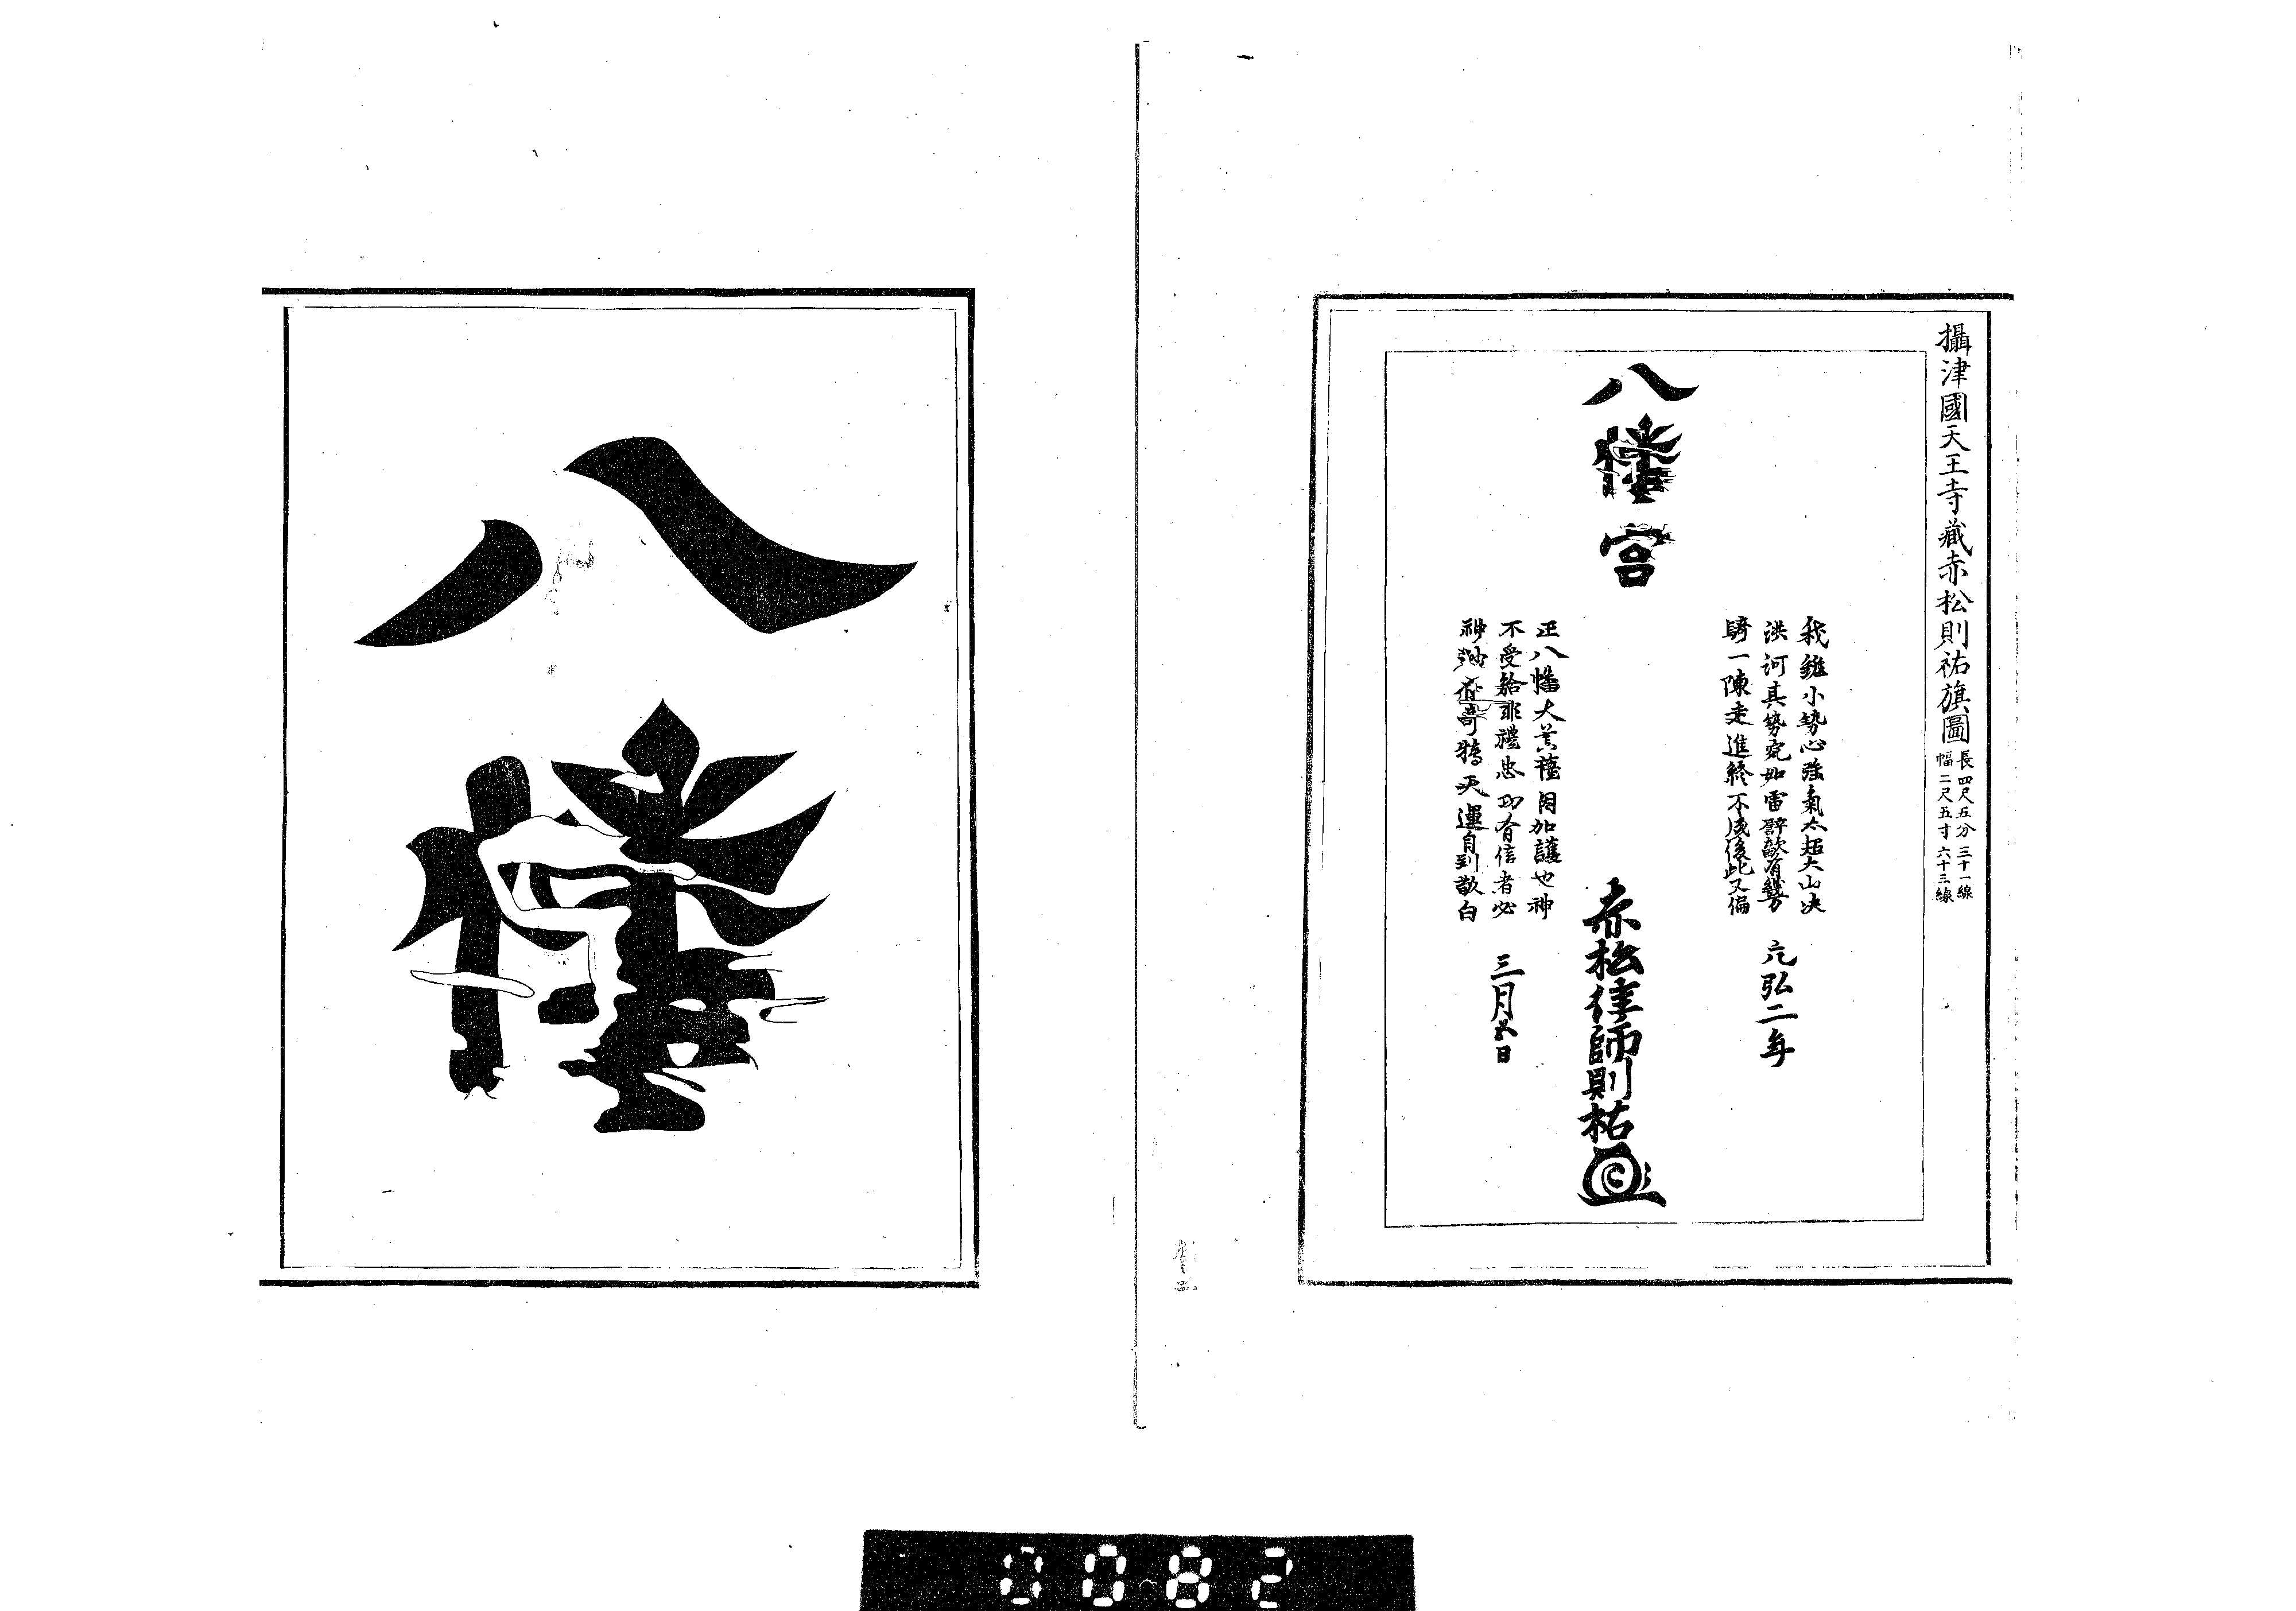 攝津國天王寺藏赤松則祐旗圖
長四尺五分 三十一線
幅二尺五寸 六十三線
我雖小勢心強氣太超大山决
洪河其勢宛如雷霹歟有幾万
騎一陳走進終不成後此又偏
元弘二年
八幡宮
赤松律師則祐
正八幡大菩薩因加護也神
不受給非禮忠功有信者必
神天運自到敬白
三月五日
八幡
0082